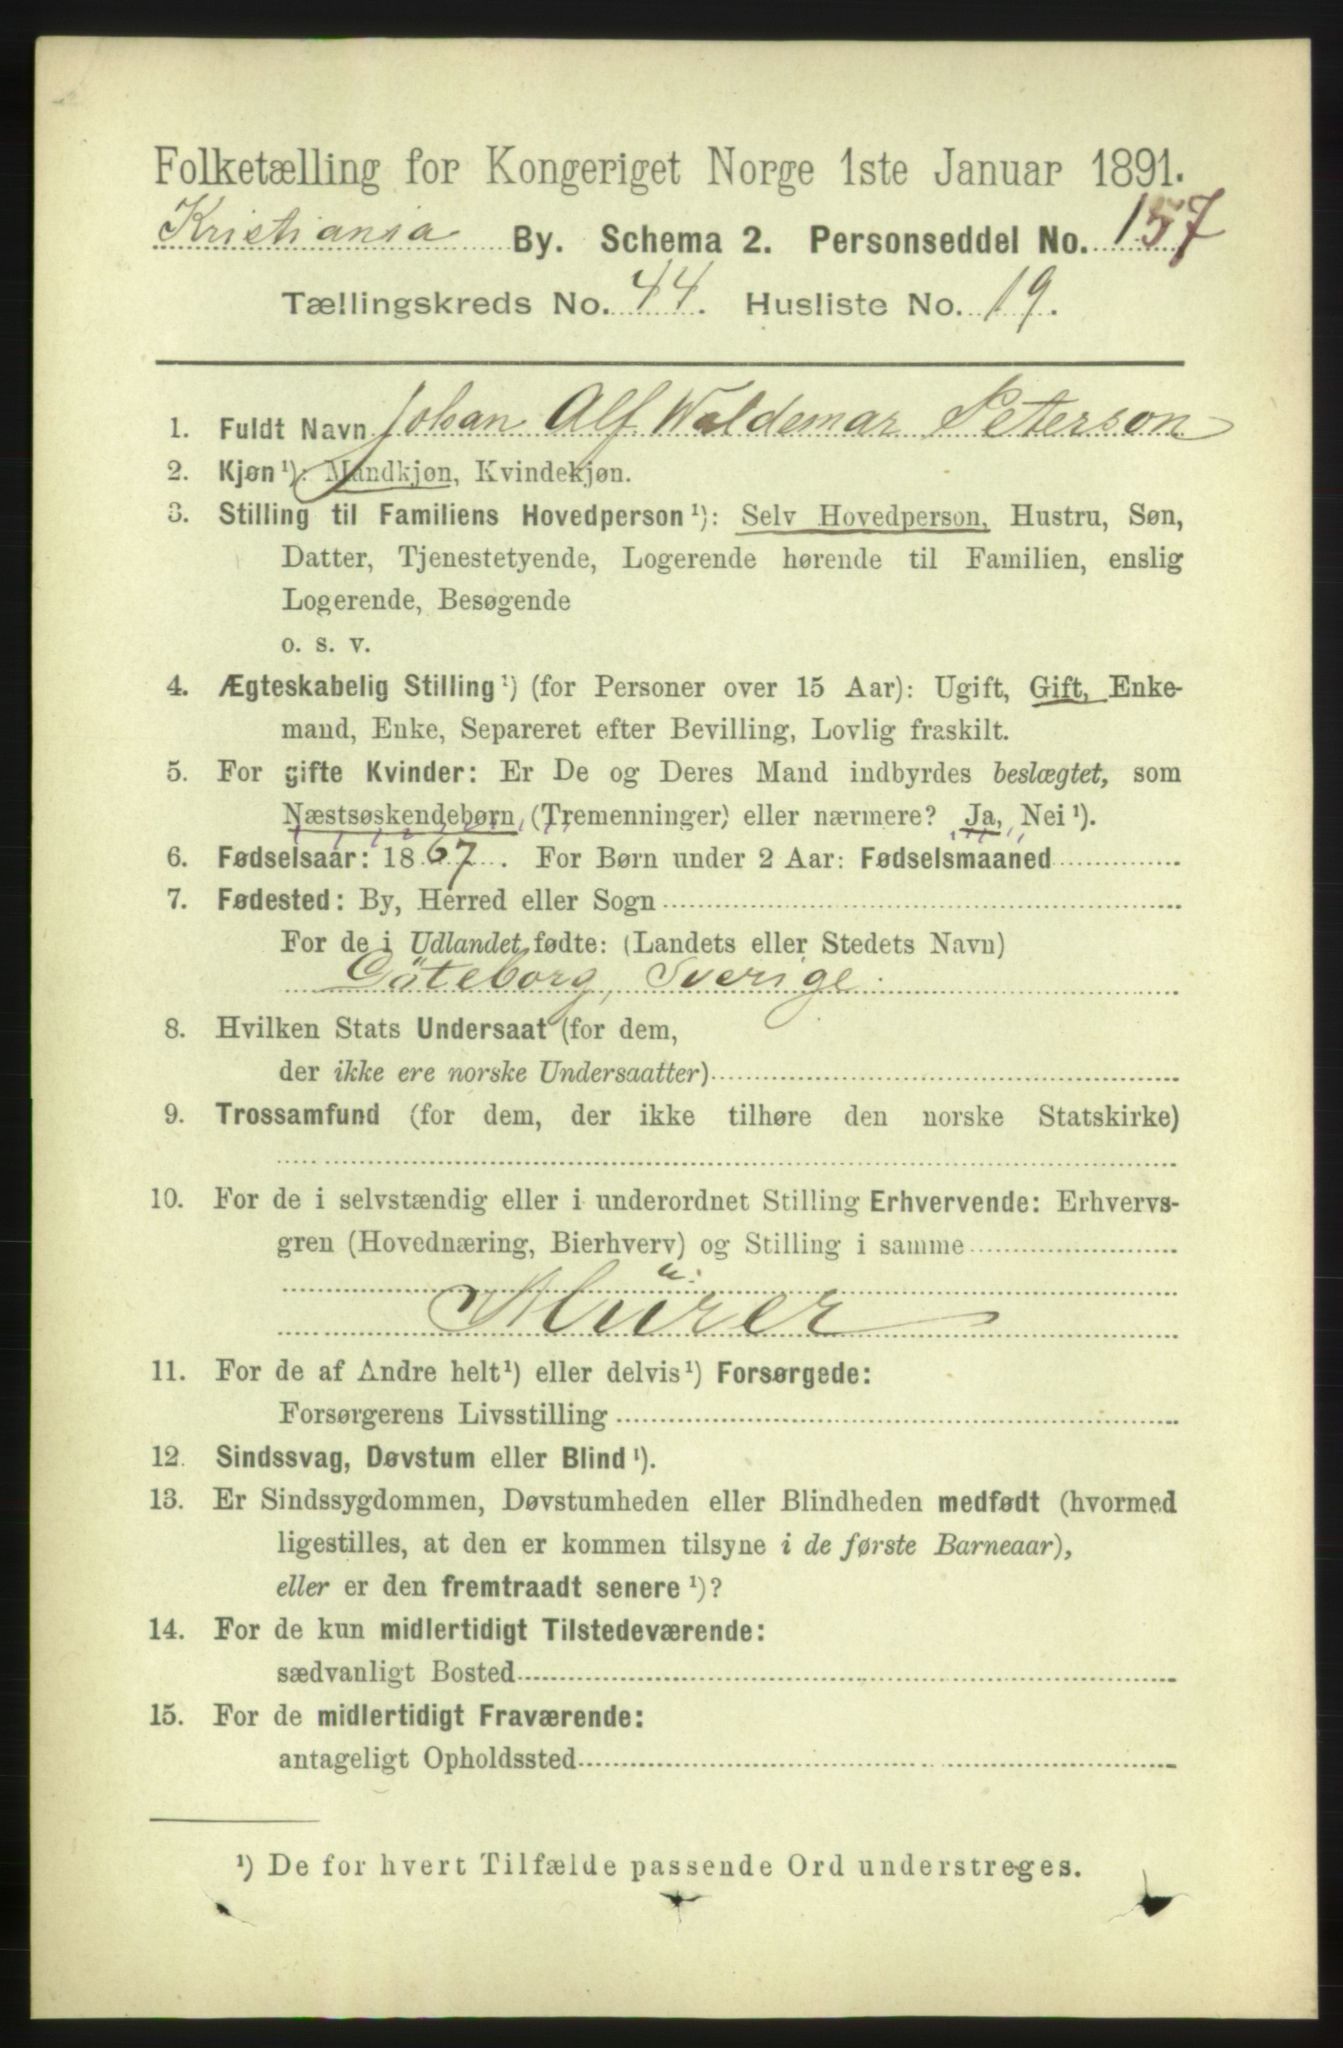 Folketælling for Kongeriget Norge 1ste Januar 1891.
Kristiania By. Schema 2. Personseddel No. 157
Tællingskreds No. 44. Husliste No. 19.
1. Fuldt Navn Johan Alf Waldemar Peterson
2. Kjøn¹): Mandkjøn, Kvindekjøn.
3. Stilling til Familiens Hovedperson¹): Selv Hovedperson, Hustru, Søn,
Datter, Tjenestetyende, Logerende hørende til Familien, enslig
Logerende, Besøgende
o. s. v.
4. Ægteskabelig Stilling¹) (for Personer over 15 Aar): Ugift, Gift, Enke-
mand, Enke, Separeret efter Bevilling, Lovlig fraskilt.
5. For gifte Kvinder: Er De og Deres Mand indbyrdes beslægtet, som
Næstsøskendebørn, (Tremenninger) eller nærmere? Ja, Nei¹).
6. Fødselsaar: 1867. For Børn under 2 Aar: Fødselsmaaned
7. Fødested: By, Herred eller Sogn
For de i Udlandet fødte: (Landets eller Stedets Navn)
Göteborg, Sverige.
8. Hvilken Stats Undersaat (for dem,
der ikke ere norske Undersaatter)
9. Trossamfund (for dem, der ikke tilhøre den norske Statskirke)
10. For de i selvstændig eller i underordnet Stilling Erhvervende: Erhvervs-
gren (Hovednæring, Bierhverv) og Stilling i samme
u:
Mürer
11. For de af Andre helt¹) eller delvis¹) Forsørgede:
Forsørgerens Livsstilling
12. Sindssvag, Døvstum eller Blind¹).
13. Er Sindssygdommen, Døvstumheden eller Blindheden medfødt (hvormed
ligestilles, at den er kommen tilsyne i de første Barneaar),
eller er den fremtraadt senere¹)?
14. For de kun midlertidigt Tilstedeværende:
sædvanligt Bosted
15. For de midlertidigt Fraværende:
antageligt Opholdssted
¹) De for hvert Tilfælde passende Ord understreges.